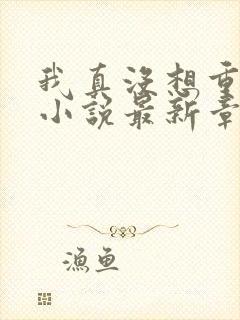 我真没想重
小说最新章
渔鱼